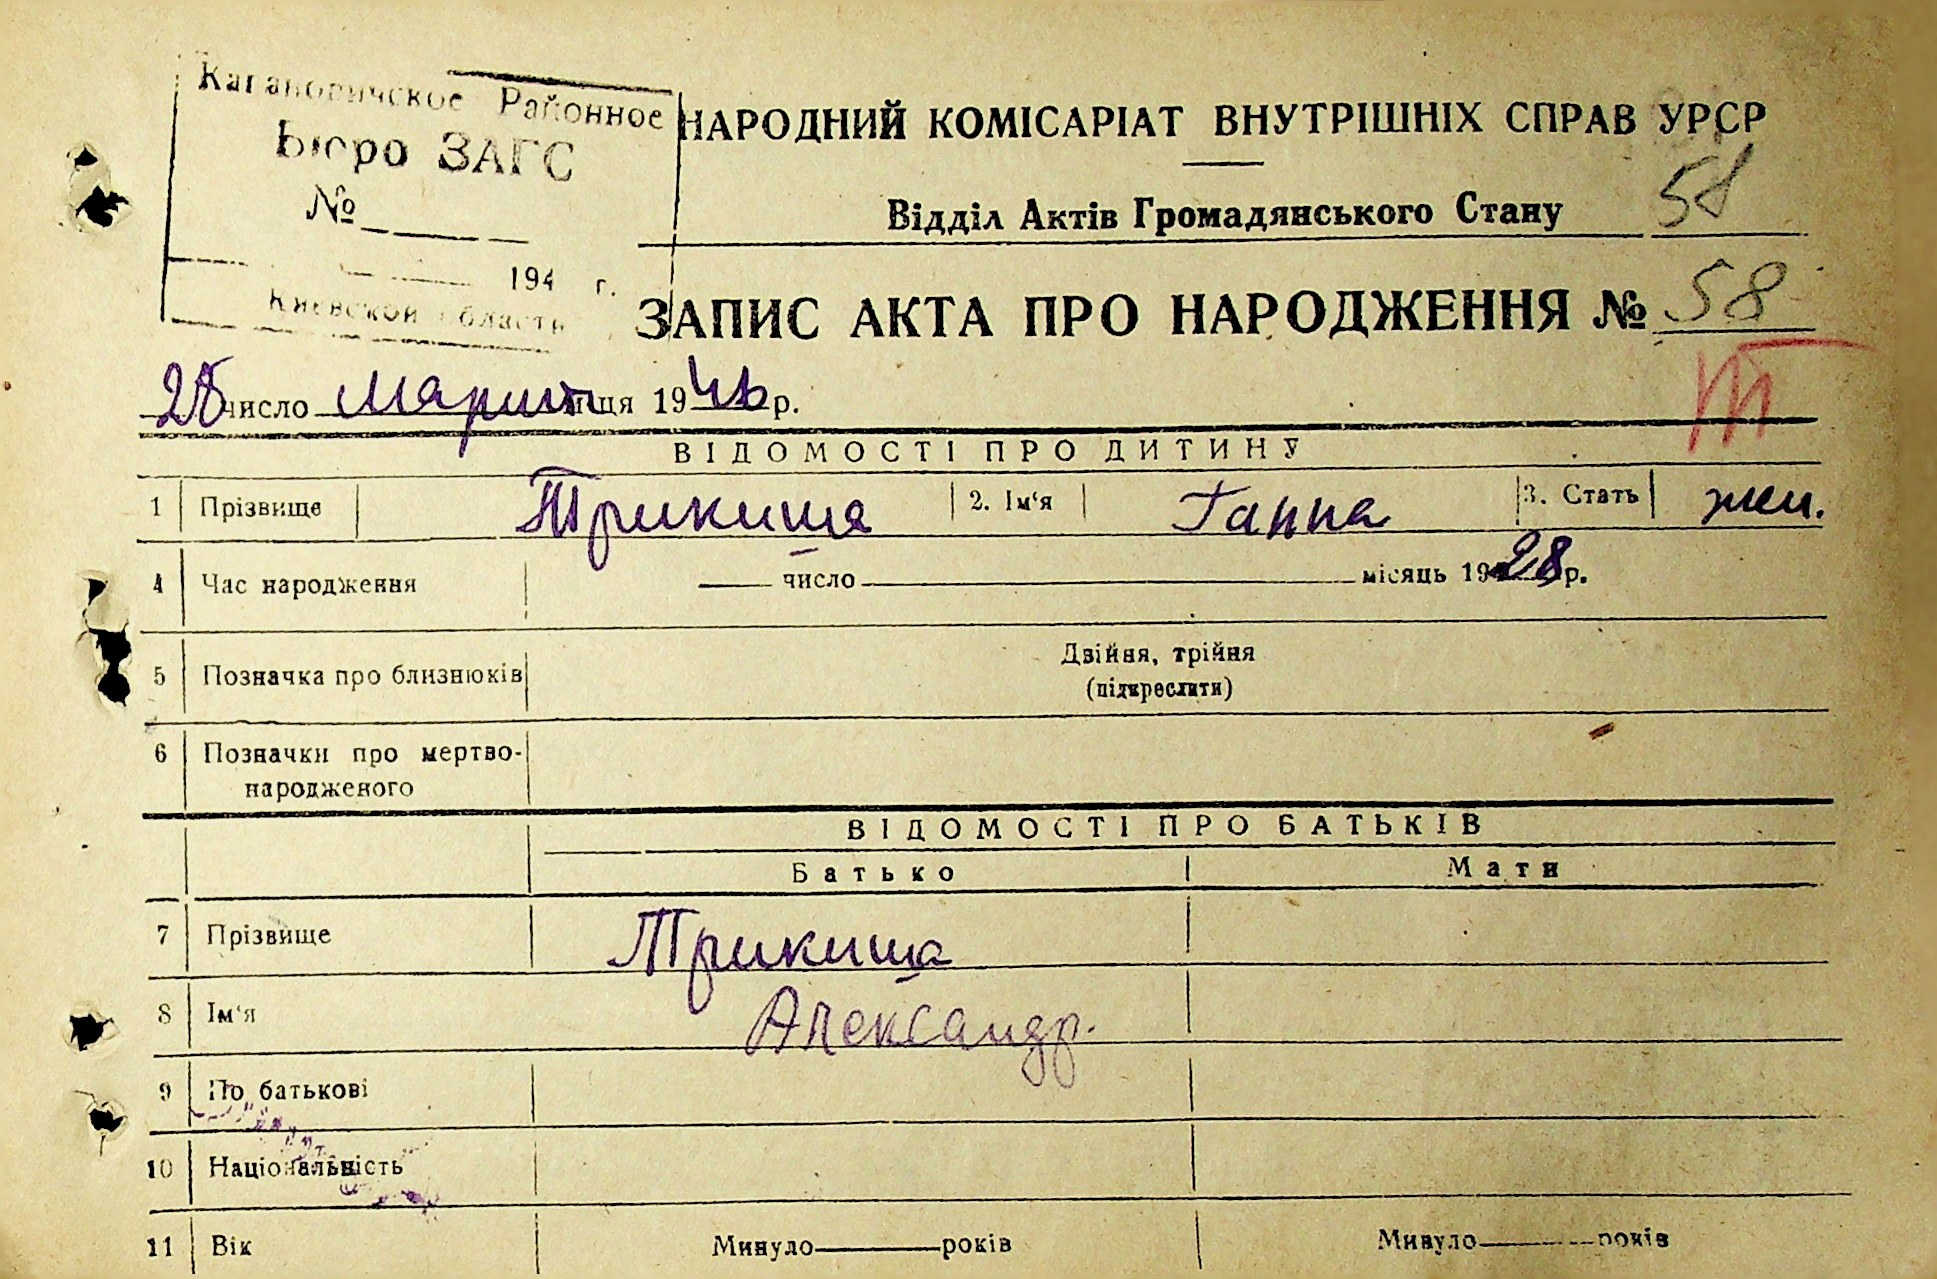 Кагановичское Районное
Бюро ЗАГС
№
194 г.
Киевской области
НАРОДНИЙ КОМІСАРІАТ ВНУТРІШНІХ СПРАВ УРСР
Відділ Актів Громадянського Стану 58
ЗАПИС АКТА ПРО НАРОДЖЕННЯ № 58
28 число Марта місяця 1946 р.
ВІДОМОСТІ ПРО ДИТИНУ
1 Прізвище Трикиша 2. Ім'я Ганна 3. Стать жен.
4 Час народження число місяць 1928 р.
5 Позначка про близнюків Двійня, трійня
(підкреслити)
6 Позначки про мертво-
народженого
ВІДОМОСТІ ПРО БАТЬКІВ
Батько Мати
7 Прізвище Трикиша
8 Ім'я Александр.
9 По батькові
10 Національність
11 Вік Минуло років Минуло років